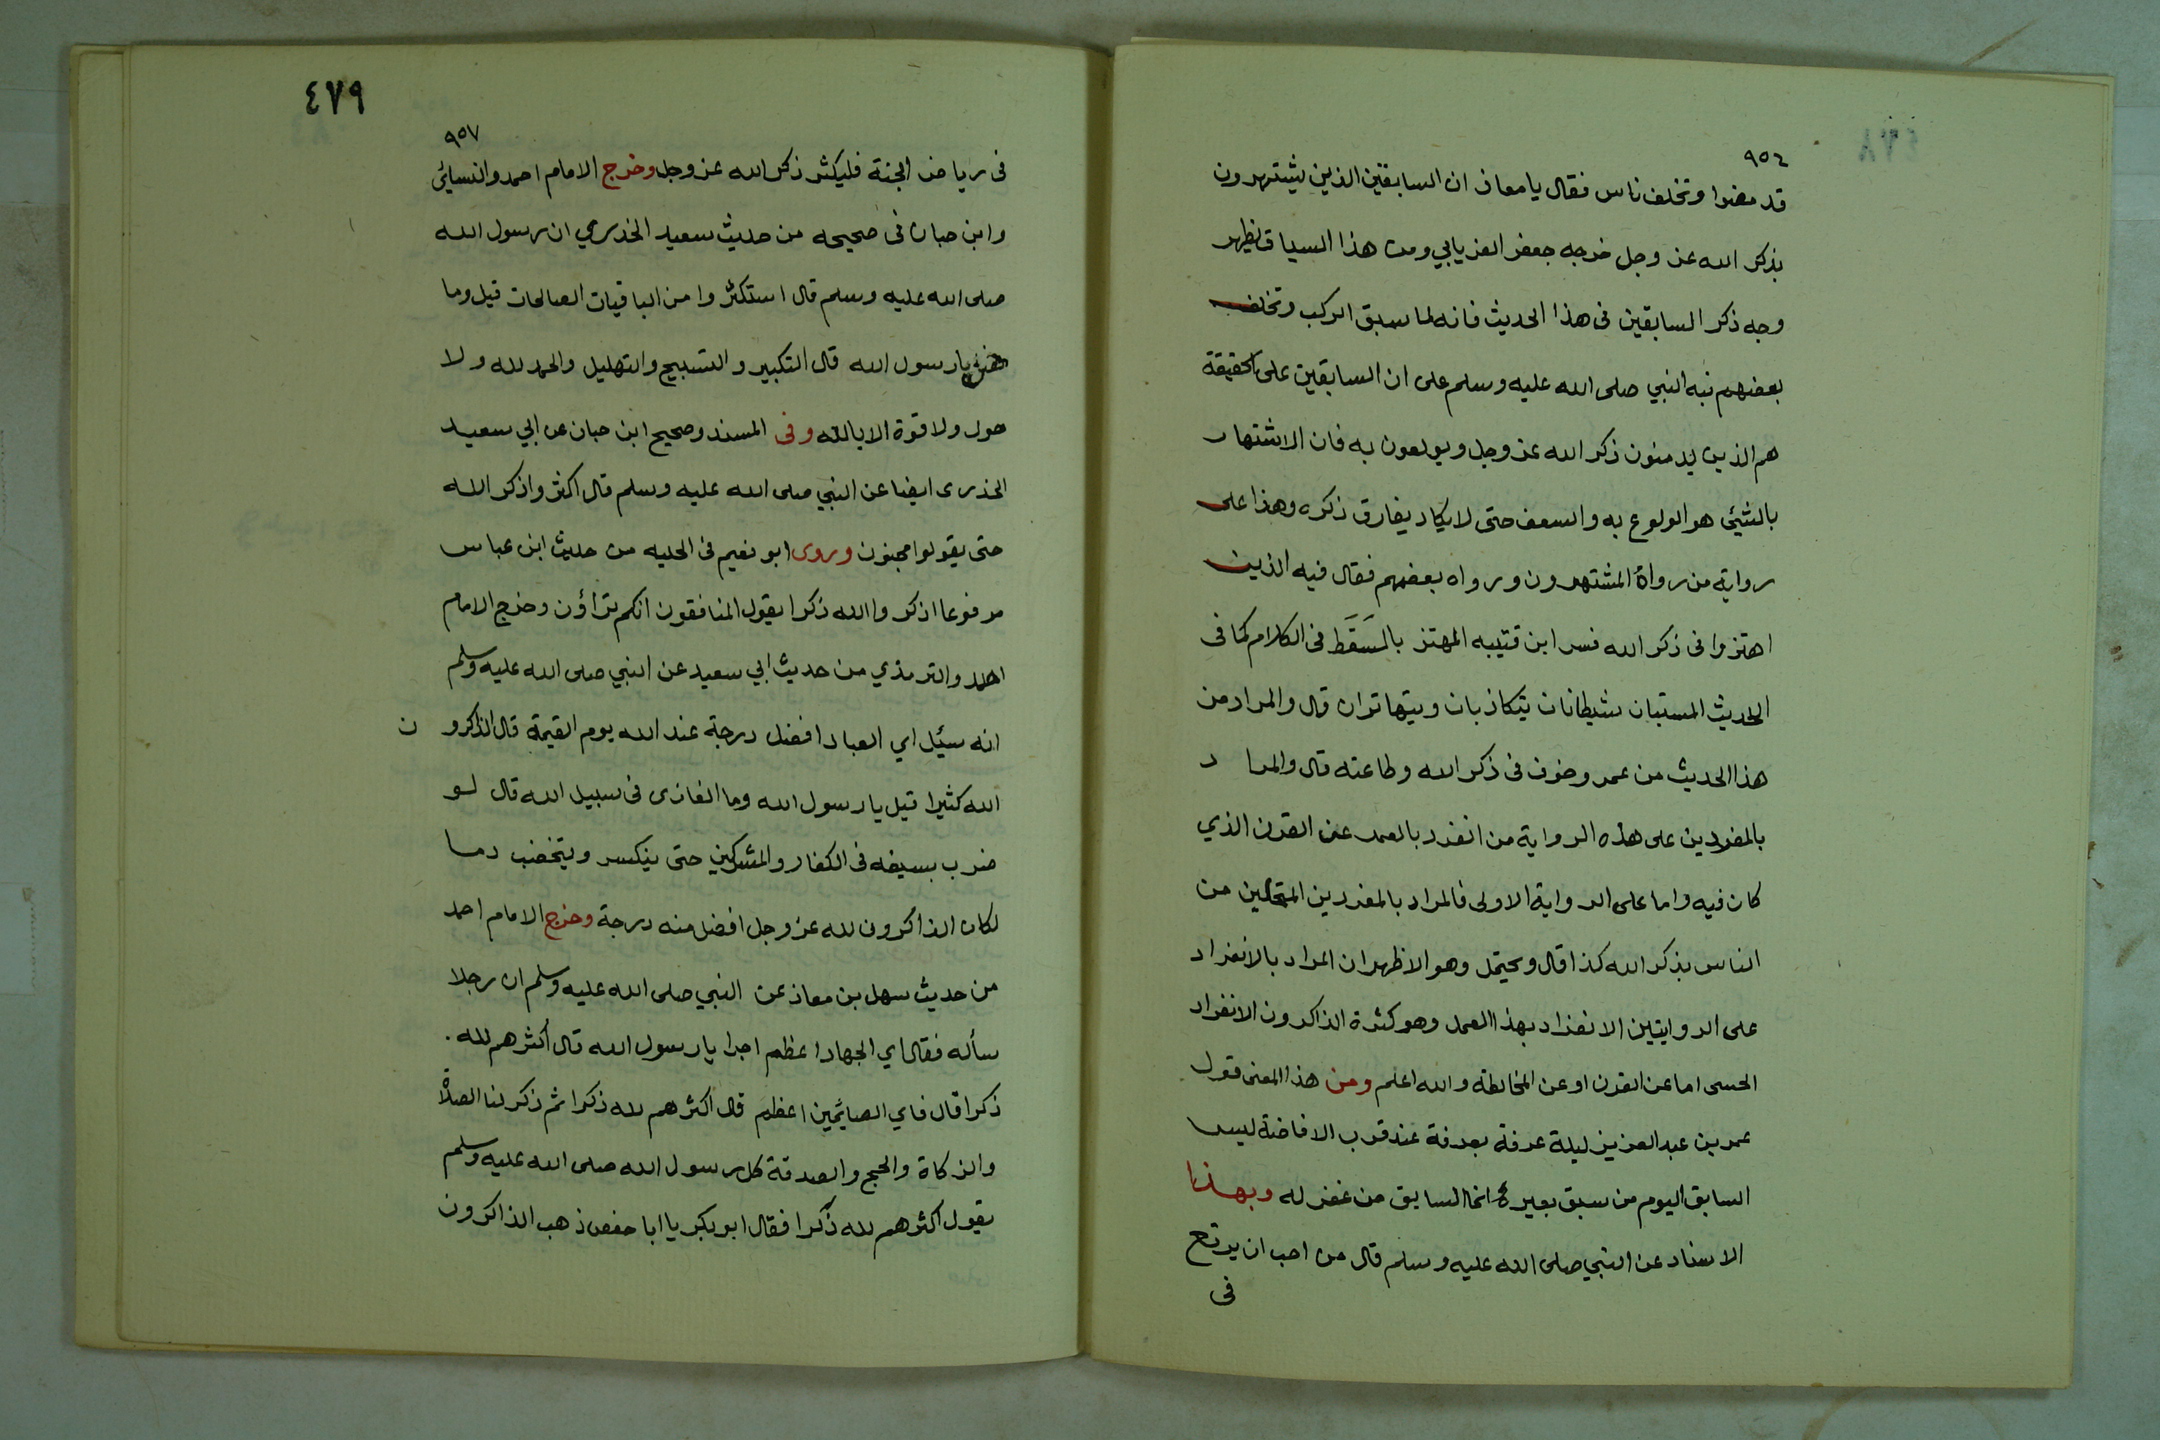 ٩٥٤
قد مضوا وتخلف ناس فقال يا معاذ ان السابقين الذين يشتهرون
بذكر الله عز وجل خرجه جعفر الفريابي ومن هذا السياق يظهر
وجه ذكر السابقين في هذا الحديث فانه لما سبق الركب وتخلف
بعضهم نبه النبي صلى الله عليه وسلم على ان السابقين على الحقيقة
هم الذين يدمنون ذكر الله عز وجل ويولعون به فان الاشتهار
بالشيئ هو الولوع به والسعف حتى لا يكاد يفارق ذكره وهذا على
رواية من رواة المشتهرون ورواه بعضهم فقال فيه الذين
اهتزوا في ذكر الله فسر ابن قتيبه المهتز بالسَقَط في الكلام كما في
الحديث المستبان شيطانان يتكاذبان ويتهاتران قال والمراد من
هذا الحديث من عمر وخوف في ذكر الله وطاعته قال والمراد
بالمفردين على هذه الرواية من انفرد بالعمر عن القرن الذي
كان فيه واما على الرواية الاولى فالمراد بالمفردين المتخلين من
الناس بذكر الله كذا قال ويحتمل وهو الاظهر ان المراد بالانفراد
على الروايتين الانفراد بهذا العمل وهو كثرة الذاكرون الانفراد
الحسى اما عن القرن او عن المخالطة والله اعلم ومن هذا المعنى قول
عمر بن عبد العزيز ليلة عرفة بعرفة عند قرب الافاضة ليس
السابق اليوم من سبق بعيره انما السابق من غفر له وبهذا
الاسناد عن النبي صلى الله عليه وسلم قال من احب ان يرتع
في
٤٧٩
٩٥٧
في رياض الجنة فليكثر ذكر الله عز وجل وخرج الامام احمد والنسايئ
وابن حبان في صحيحه من حديث سعيد الخدري ان رسول الله
صلى الله عليه وسلم قال استكثروا من الباقيات الصالحات قيل وما
هن يا رسول الله قال التكبير والتسبيح والتهليل والحمد لله ولا
حول ولا قوة الا بالله وفى المسند وصحيح ابن حبان عن ابي سعيد
الخذرى ايضا عن النبي صلى الله عليه وسلم قال اكثروا ذكر الله
حتى يقولوا مجنون وروى ابو نعيم في الحليه من حديث ابن عباس
مرفوعا اذكروا الله ذكرا يقول المنافقون انكم تراؤن وخرج الامام
احمد والترمذي من حديث ابي سعيد عن النبي صلى الله عليه وسلم
انه سيئل اي العباد افضل درجة عند الله يوم القيمة قال الذاكرون
الله كثيرا قيل يا رسول الله وما الغازى في سبيل الله قال لو
ضرب بسيفه في الكفار والمشركين حتى ينكسر ويتخضب دما
لكان الذاكرون لله عز وجل افضل منه درجة وخرج الامام احمد
من حديث سهل بن معاذ عن النبي صلى الله عليه وسلم ان رجلا
سأله فقال اي الجهاد اعظم اجرا يا رسول الله قال أكثرهم لله .
ذكرا قال فاي الصايمين اعظم قال اكثرهم لله ذكرا ثم ذكر لنا الصلاة
والزكاة والحج والصدقة كل رسول الله صلى الله عليه وسلم
يقول اكثرهم لله ذكرا فقال ابو بكر يا ابا حفص ذهب الذاكرون